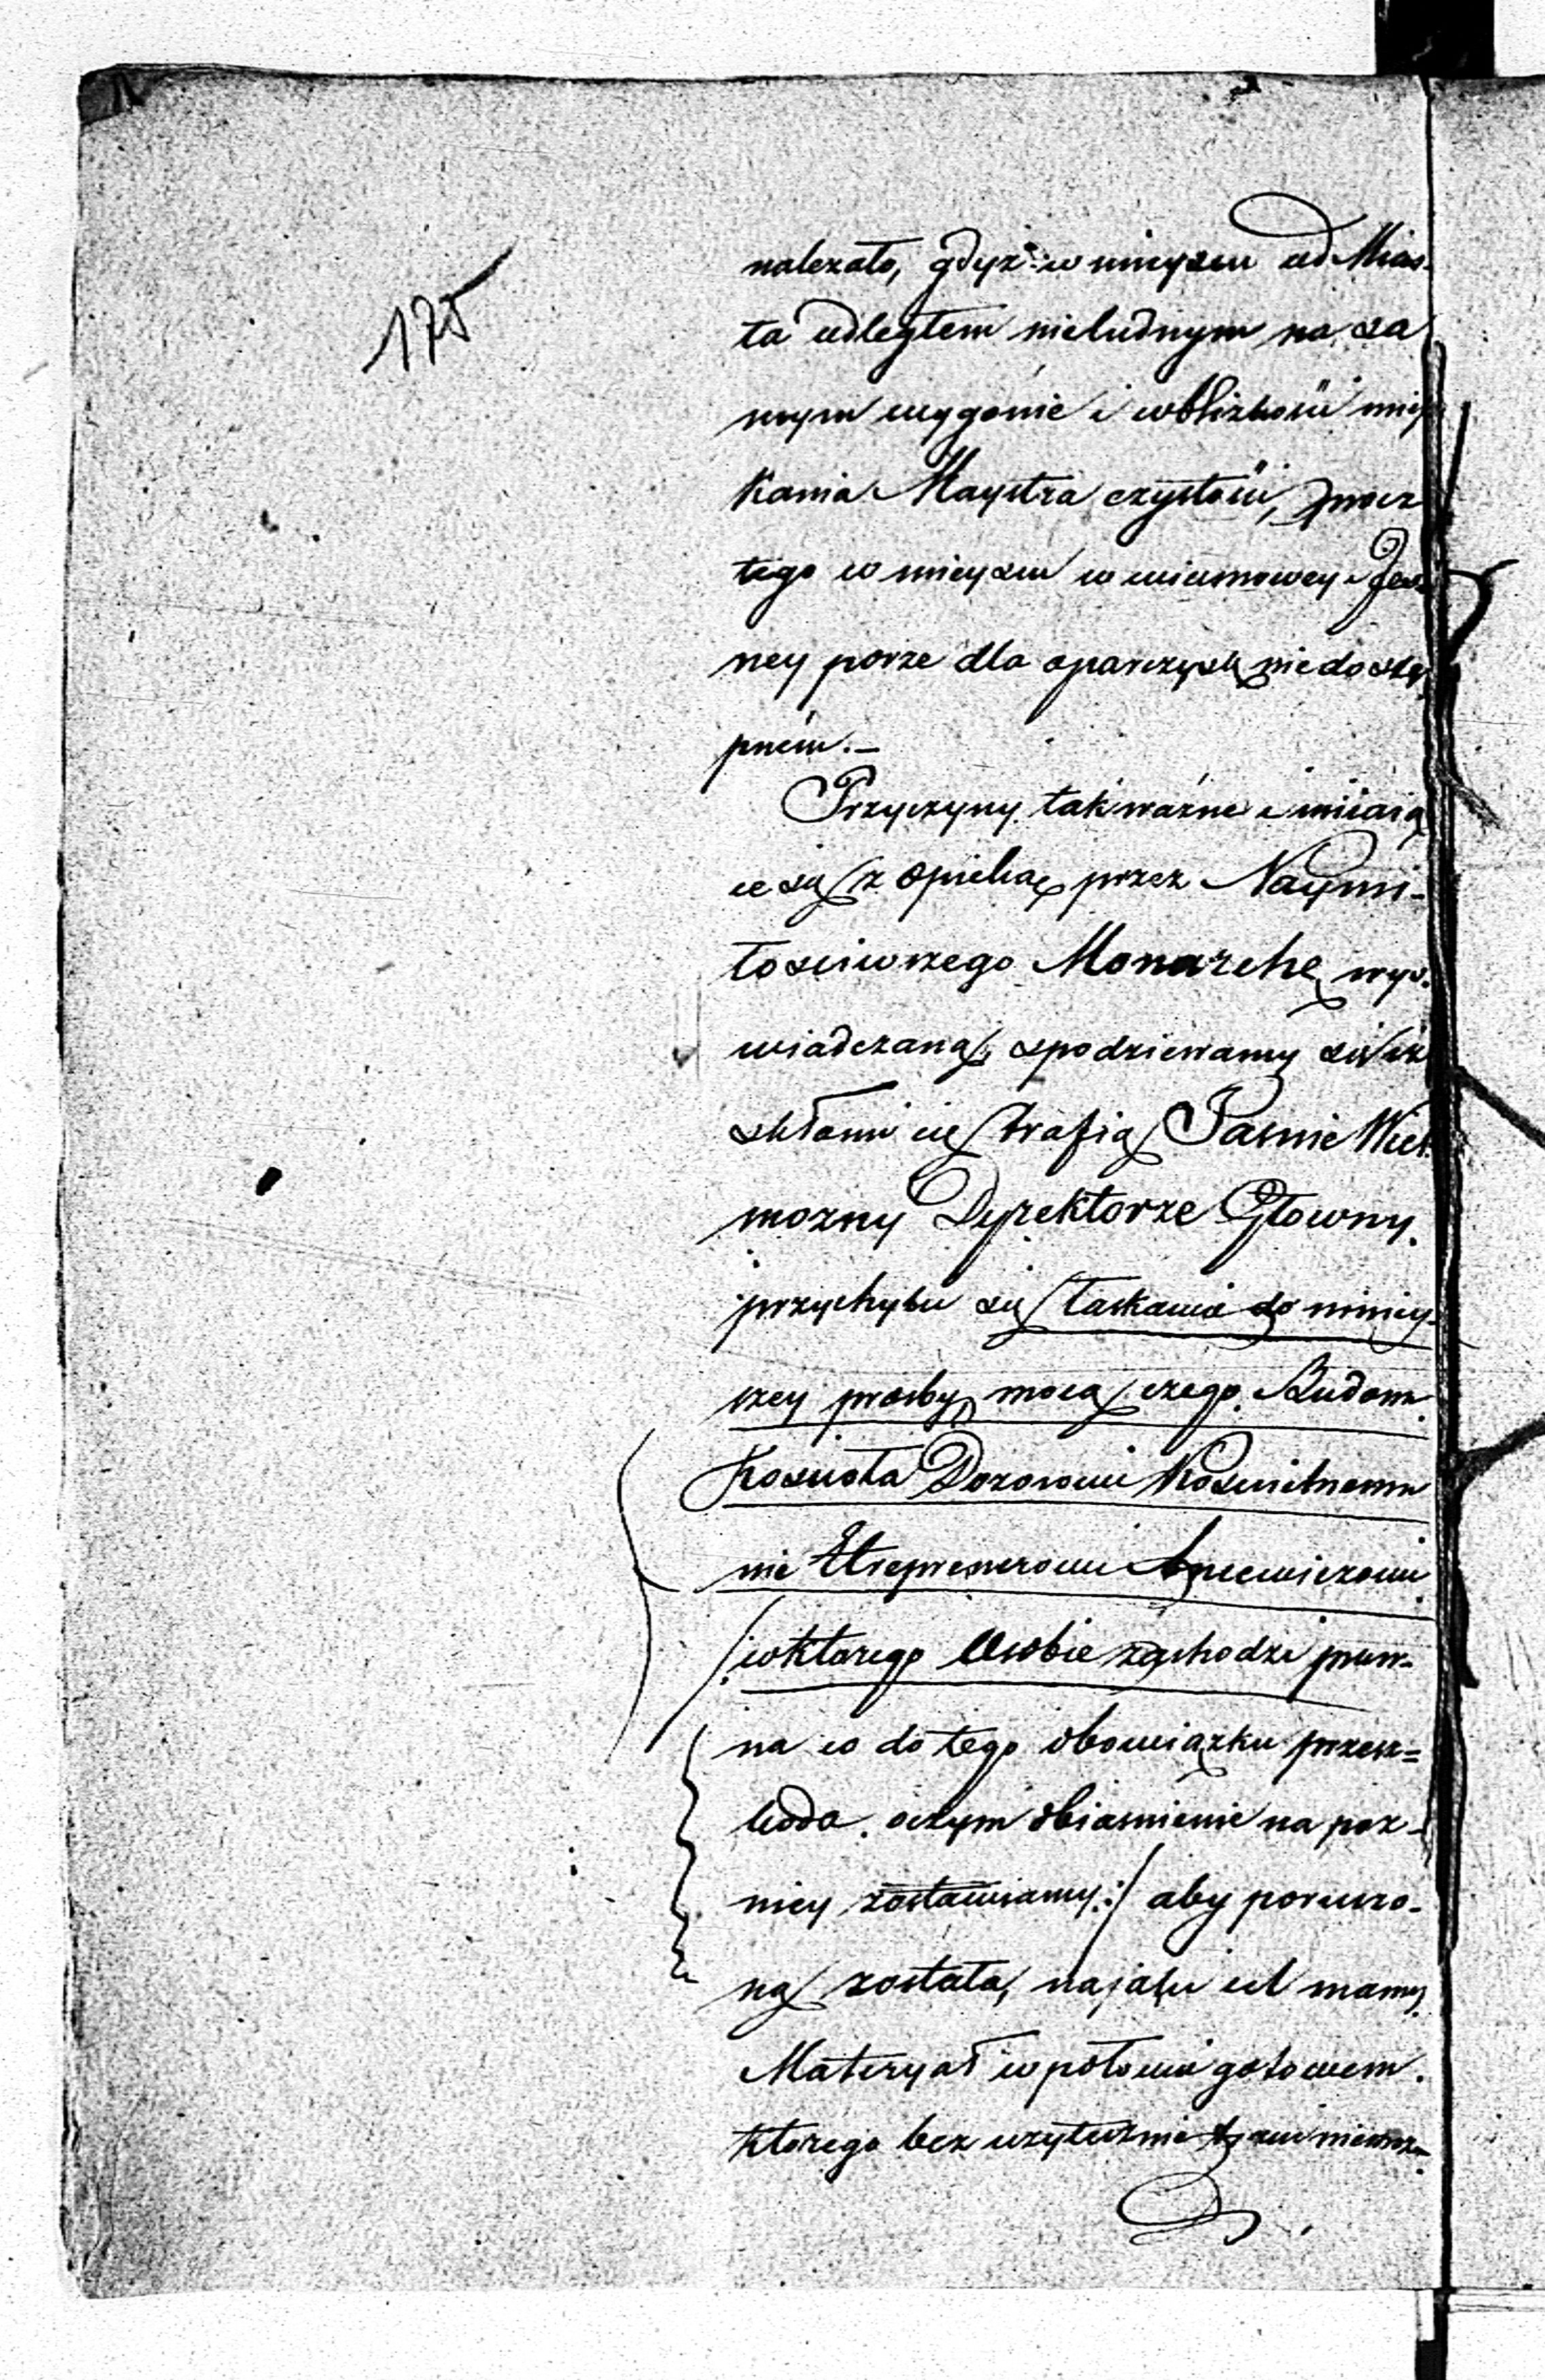 175
należało, gdyż w mieyscu od Mias-
ta odległem nieludnym na sa
mym wygonie i w blizkości miesz
kania Maystra czystości, procz
tego w mieyscu w wiosnowey i Jesien
ney porze dla oparczysk niedostę
pnem.-
Przyczyny tak ważne i miesią
ce się z opieką przez Naymi-
łosciwszego Monarchę wyś.
wiadczaną, spodziewamy się iż
skłonić cię trafią Jaśnie Wiel
mozny Dyrektorze Głowny.
przychylić się łaskawie do niniey-
szey prosby, mocą czego Budowa
Kosciola Dozorowi Koscielnemu
nie Etreprenerowi
/:w ktorego Osobie zachodzi pew-
na co do tego obowiązku przesz=
koda. o czym obiasnienie na poz-
niey zostawiamy:/ aby poruczo-
ną została, na jaki cel mamy
Materyał w połowie gotowem.
ktorego bez uzytecznie